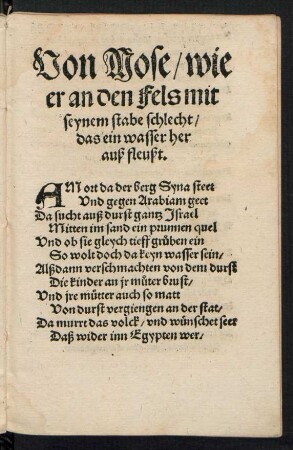 Von Mose/wie
er an den Fels mit
seynem stabe schlecht/
das ein wasser her
auß fleußt.
AM ort da der berg Syna steet
Vnd gegen Arabiam geet
Da sucht auß durst gantz Israel
Mitten im sand ein prunnen quel
Vnd ob sie gleych tieff grüben ein
So wolt doch da keyn wasser sein/
Alßdann verschmachten von dem durst
Die kinder an jr müter brust/
Vnd jre mütter auch so matt
Von durst vergiengen an der stat/
Da murrt das volck/ vnd wünschet seer
Daß wider inn Egypten wer/